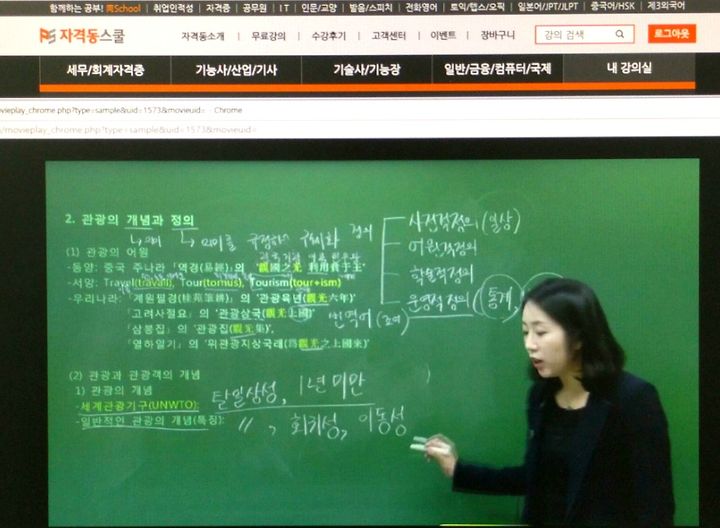 함께하는 공부! 同School | 취업인적성 | 자격증 | 공무원 | IT | 인문/교양 | 발음/스피치 | 전화영어 | 토익/텝스/오픽 | 일본어/JPT/JLPT | 중국어/HSK | 제3외국어
자격동스쿨 자격동소개 | 무료강의 | 수강후기 | 고객센터 | 이벤트 | 장바구니 강의 검색 로그아웃
세무/회계자격증 기능사/산업/기사 기술사/기능장 일반/금융/컴퓨터/국제 내 강의실
vieplay_chrome.php?type=sample&uid=1573&movieuid= - Chrome
/movieplay_chrome.php?type=sample&uid=1573&movieuid=
2. 관광의 개념과 정의
의미를 규정하여 구체화 정의
사전적정의 (일상)
어원적정의
학술적정의
운영적정의 (통계,
(1) 관광의 어원
-동양: 중국 주나라 「역경(易經)」의 '觀國之光 利用賓于王'
-서양: Travel(travail), Tour(tornus), Tourism(tour+ism)
-우리나라: 「계원필경(桂苑筆耕)」의 '관광육년(觀光六年)'
「고려사절요」의 '관광상국(觀光上國)' 번역어
「삼봉집」의 '관광집(觀光集)',
「열하일기」의 '위관광지상국래(爲觀光之上國來)'
(2) 관광과 관광객의 개념
1) 관광의 개념
-세계관광기구(UNWTO): 탈일상성, 1년 미만
-일반적인 관광의 개념(특징): 〃, 회귀성, 이동성